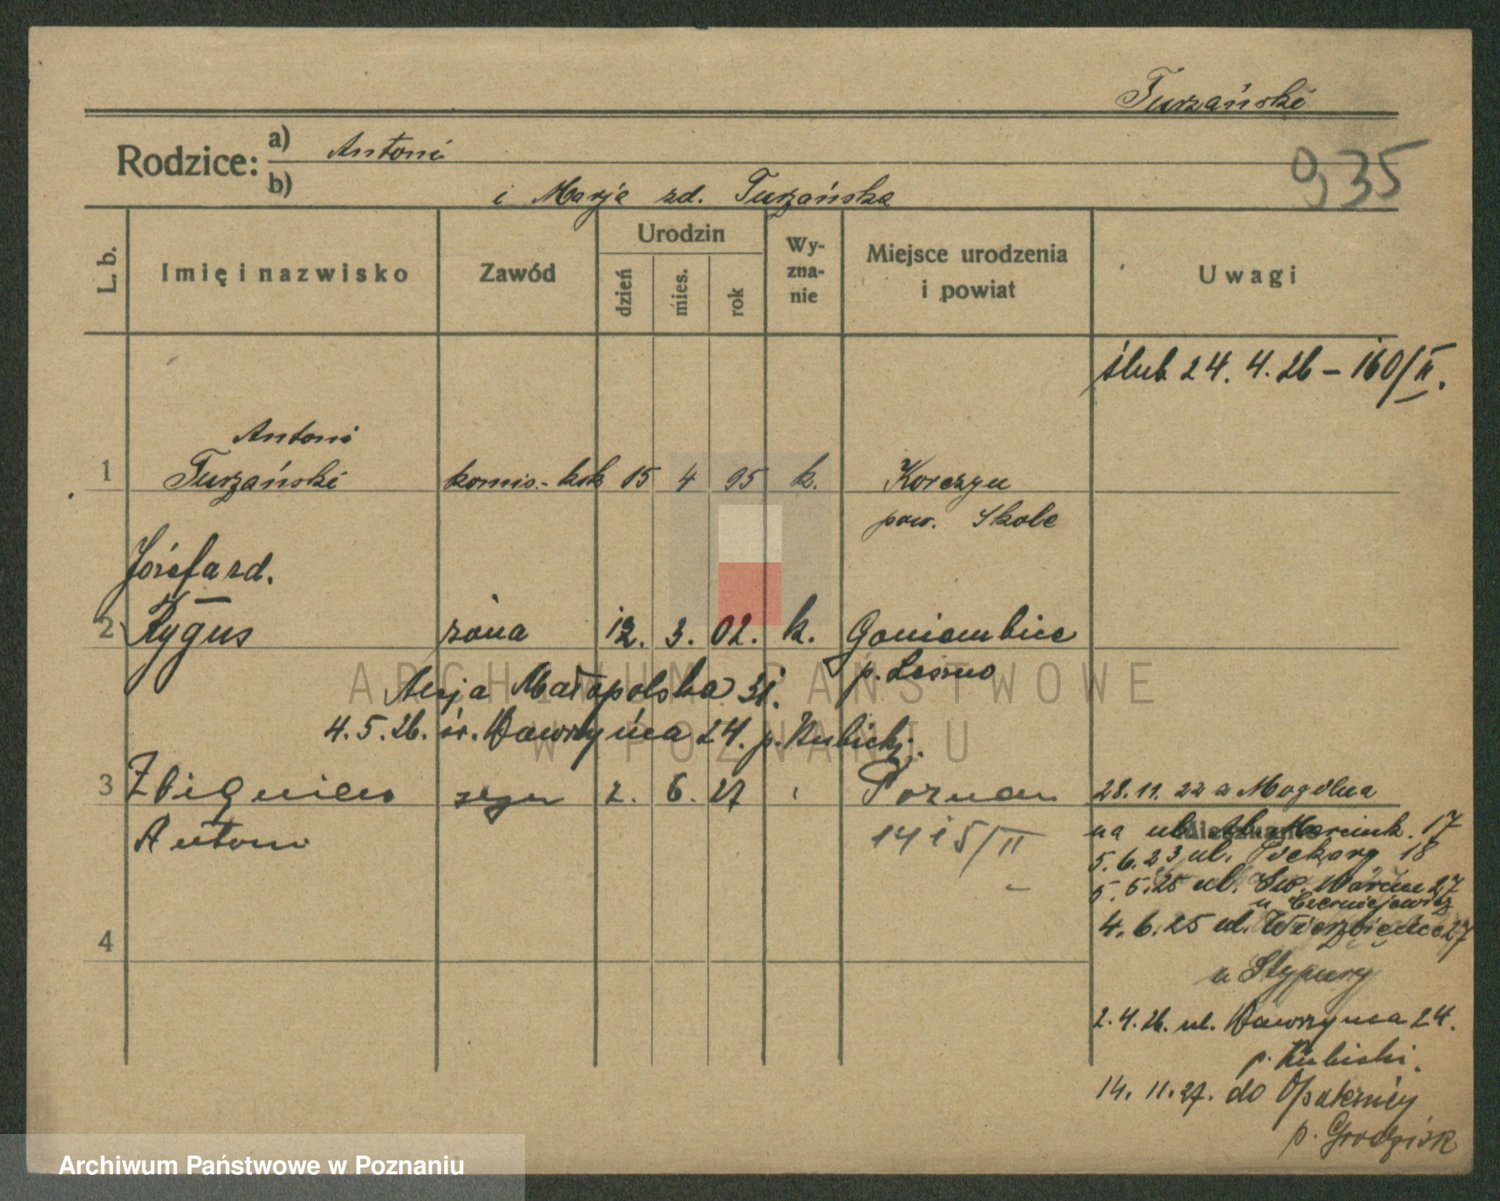 Turzański
935
Rodzice: a) Antoni
b) i Marja zd. Turzańska
L. b.
Imię i nazwisko
Zawód
Urodzin
dzień
mies.
rok
Wy-
zna-
nie
Miejsce urodzenia
i powiat
Uwagi
ślub 24. 4. 26 – 160/II.
Antoni
1 Turzański komis.- 15 4 95 k. Korczyn
pow. Skole
Józefa zd.
2 Rygus żona 12. 3. 02. k. Goniembice
p. Leszno
Małopolska
4. 5. 26. św. Wawrzyńca 24. p. Kubicki.
3 Zbigniew syn 2. 6. 27 Poznań
Antoni 1415/II
28. 11. 22 z Mogilna
na ul. Marcink. 17
5. 6. 23 ul. Piekary 18
5. 5. 25 ul. Św. Marcin 27
u Czerniejewicz
4. 6. 25 ul. Wierzbięcice 27
u Stypury
2. 4. 26. ul. Wawrzyńca 24.
p. Kubicki.
14. 11. 27. do Opalenicy
p. Grodzisk
4
ARCHIWUM PAŃSTWOWE
W POZNANIU
Archiwum Państwowe w Poznaniu